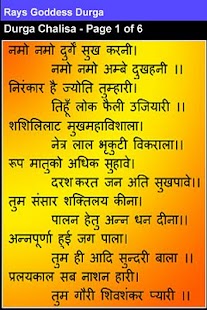 Rays Goddess Durga
Durga Chalisa - Page 1 of 6
नमो नमो दुर्गे सुख करनी।
नमो नमो अम्बे दुखहनी ।।
निरंकार है ज्योति तुम्हारी।
तिहूँ लोक फैली उजियारी ।।
शशिलिलाट मुखमहाविशाला।
नेत्र लाल भृकुटी विकराला।।
रूप मातुको अधिक सुहावे।
दरशकरत जन अति सुखपावे।।
तुम संसार शक्तिलय कीना।
पालन हेतु अन्न धन दीना।।
अन्नपूर्णा हूई जग पाला।
तुम ही आदि सुन्दरी बाला ।।
प्रलयकाल सब नाशन हारी।
तुम गौरी शिवशंकर प्यारी ।।